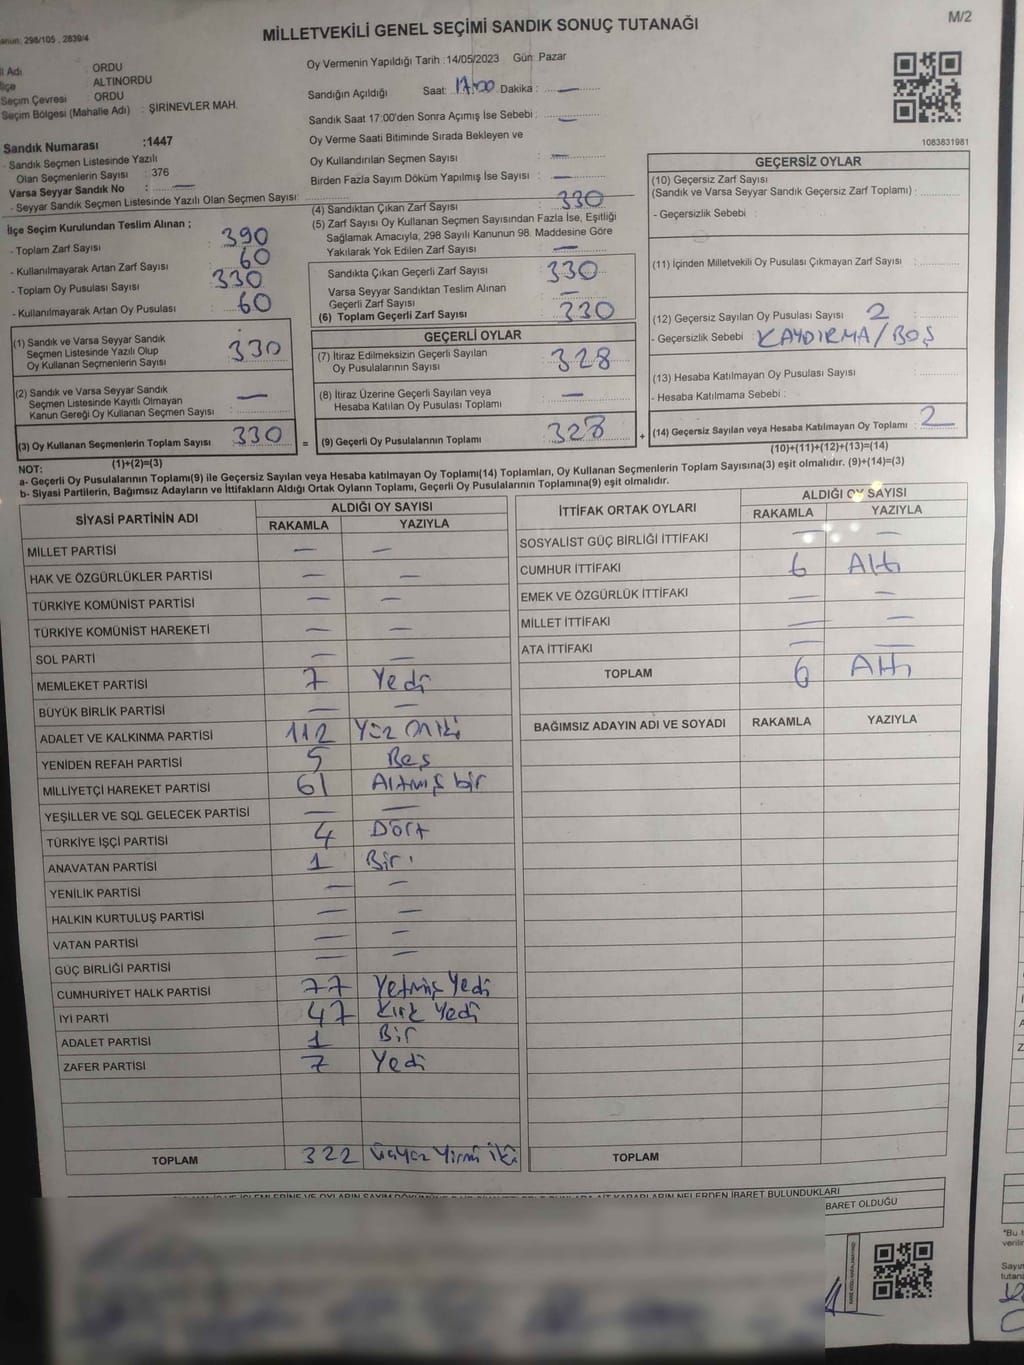 MİLLETVEKİLİ GENEL SEÇİMİ SANDIK SONUÇ TUTANAĞI
M/2
anun: 298/105 , 2839/4
l Adı : ORDU
lçe : ALTINORDU
Seçim Çevresi : ORDU
Seçim Bölgesi (Mahalle Adı) : ŞİRİNEVLER MAH.
Sandık Numarası :1447
- Sandık Seçmen Listesinde Yazılı
Olan Seçmenlerin Sayısı : 376
Varsa Seyyar Sandık No : —
- Seyyar Sandık Seçmen Listesinde Yazılı Olan Seçmen Sayısı:
Oy Vermenin Yapıldığı Tarih :14/05/2023 Gün: Pazar
Sandığın Açıldığı Saat: 17:00 Dakika : —
Sandık Saat 17:00'den Sonra Açımış İse Sebebi : —
Oy Verme Saati Bitiminde Sırada Bekleyen ve
Oy Kullandırılan Seçmen Sayısı : —
Birden Fazla Sayım Döküm Yapılmış İse Sayısı : —
1083831981
İlçe Seçim Kurulundan Teslim Alınan ;
- Toplam Zarf Sayısı 390
- Kullanılmayarak Artan Zarf Sayısı 60
- Toplam Oy Pusulası Sayısı 330
- Kullanılmayarak Artan Oy Pusulası : 60
(1) Sandık ve Varsa Seyyar Sandık
Seçmen Listesinde Yazılı Olup
Oy Kullanan Seçmenlerin Sayısı 330
(2) Sandık ve Varsa Seyyar Sandık
Seçmen Listesinde Kayıtlı Olmayan
Kanun Gereği Oy Kullanan Seçmen Sayısı —
(3) Oy Kullanan Seçmenlerin Toplam Sayısı 330
(1)+(2)=(3)
(4) Sandıktan Çıkan Zarf Sayısı 330
(5) Zarf Sayısı Oy Kullanan Seçmen Sayısından Fazla İse, Eşitliği
Sağlamak Amacıyla, 298 Sayılı Kanunun 98. Maddesine Göre
Yakılarak Yok Edilen Zarf Sayısı —
Sandıkta Çıkan Geçerli Zarf Sayısı 330
Varsa Seyyar Sandıktan Teslim Alınan
Geçerli Zarf Sayısı —
(6) Toplam Geçerli Zarf Sayısı : 330
GEÇERLİ OYLAR
(7) İtiraz Edilmeksizin Geçerli Sayılan
Oy Pusulalarının Sayısı 328
(8) İtiraz Üzerine Geçerli Sayılan veya
Hesaba Katılan Oy Pusulası Toplamı —
= (9) Geçerli Oy Pusulalarının Toplamı 328 +
GEÇERSİZ OYLAR
(10) Geçersiz Zarf Sayısı
(Sandık ve Varsa Seyyar Sandık Geçersiz Zarf Toplamı) :
- Geçersizlik Sebebi :
(11) İçinden Milletvekili Oy Pusulası Çıkmayan Zarf Sayısı :
(12) Geçersiz Sayılan Oy Pusulası Sayısı : 2
- Geçersizlik Sebebi : KAYDIRMA/BOŞ
(13) Hesaba Katılmayan Oy Pusulası Sayısı :
- Hesaba Katılmama Sebebi :
(14) Geçersiz Sayılan veya Hesaba Katılmayan Oy Toplamı : 2
(10)+(11)+(12)+(13)=(14)
NOT:
a- Geçerli Oy Pusulalarının Toplamı(9) ile Geçersiz Sayılan veya Hesaba katılmayan Oy Toplamı(14) Toplamları, Oy Kullanan Seçmenlerin Toplam Sayısına(3) eşit olmalıdır. (9)+(14)=(3)
b- Siyasi Partilerin, Bağımsız Adayların ve İttifakların Aldığı Ortak Oyların Toplamı, Geçerli Oy Pusulalarının Toplamına(9) eşit olmalıdır.
SİYASİ PARTİNİN ADI ALDIĞI OY SAYISI
RAKAMLA YAZIYLA
MİLLET PARTİSİ — —
HAK VE ÖZGÜRLÜKLER PARTİSİ — —
TÜRKİYE KOMÜNİST PARTİSİ — —
TÜRKİYE KOMÜNİST HAREKETİ — —
SOL PARTİ — —
MEMLEKET PARTİSİ 7 Yedi
BÜYÜK BİRLİK PARTİSİ — —
ADALET VE KALKINMA PARTİSİ 112 Yüz oniki
YENİDEN REFAH PARTİSİ 5 Beş
MİLLİYETÇİ HAREKET PARTİSİ 61 Altmış bir
YEŞİLLER VE SOL GELECEK PARTİSİ — —
TÜRKİYE İŞÇİ PARTİSİ 4 Dört
ANAVATAN PARTİSİ 1 Bir
YENİLİK PARTİSİ — —
HALKIN KURTULUŞ PARTİSİ — —
VATAN PARTİSİ — —
GÜÇ BİRLİĞİ PARTİSİ — —
CUMHURİYET HALK PARTİSİ 77 Yetmiş Yedi
İYİ PARTİ 47 Kırk Yedi
ADALET PARTİSİ 1 Bir
ZAFER PARTİSİ 7 Yedi
TOPLAM 322 Üçyüz Yirmi iki
İTTİFAK ORTAK OYLARI ALDIĞI OY SAYISI
RAKAMLA YAZIYLA
SOSYALİST GÜÇ BİRLİĞİ İTTİFAKI — —
CUMHUR İTTİFAKI 6 Altı
EMEK VE ÖZGÜRLÜK İTTİFAKI — —
MİLLET İTTİFAKI — —
ATA İTTİFAKI — —
TOPLAM 6 Altı
BAĞIMSIZ ADAYIN ADI VE SOYADI RAKAMLA YAZIYLA
TOPLAM
BARET OLDUĞU